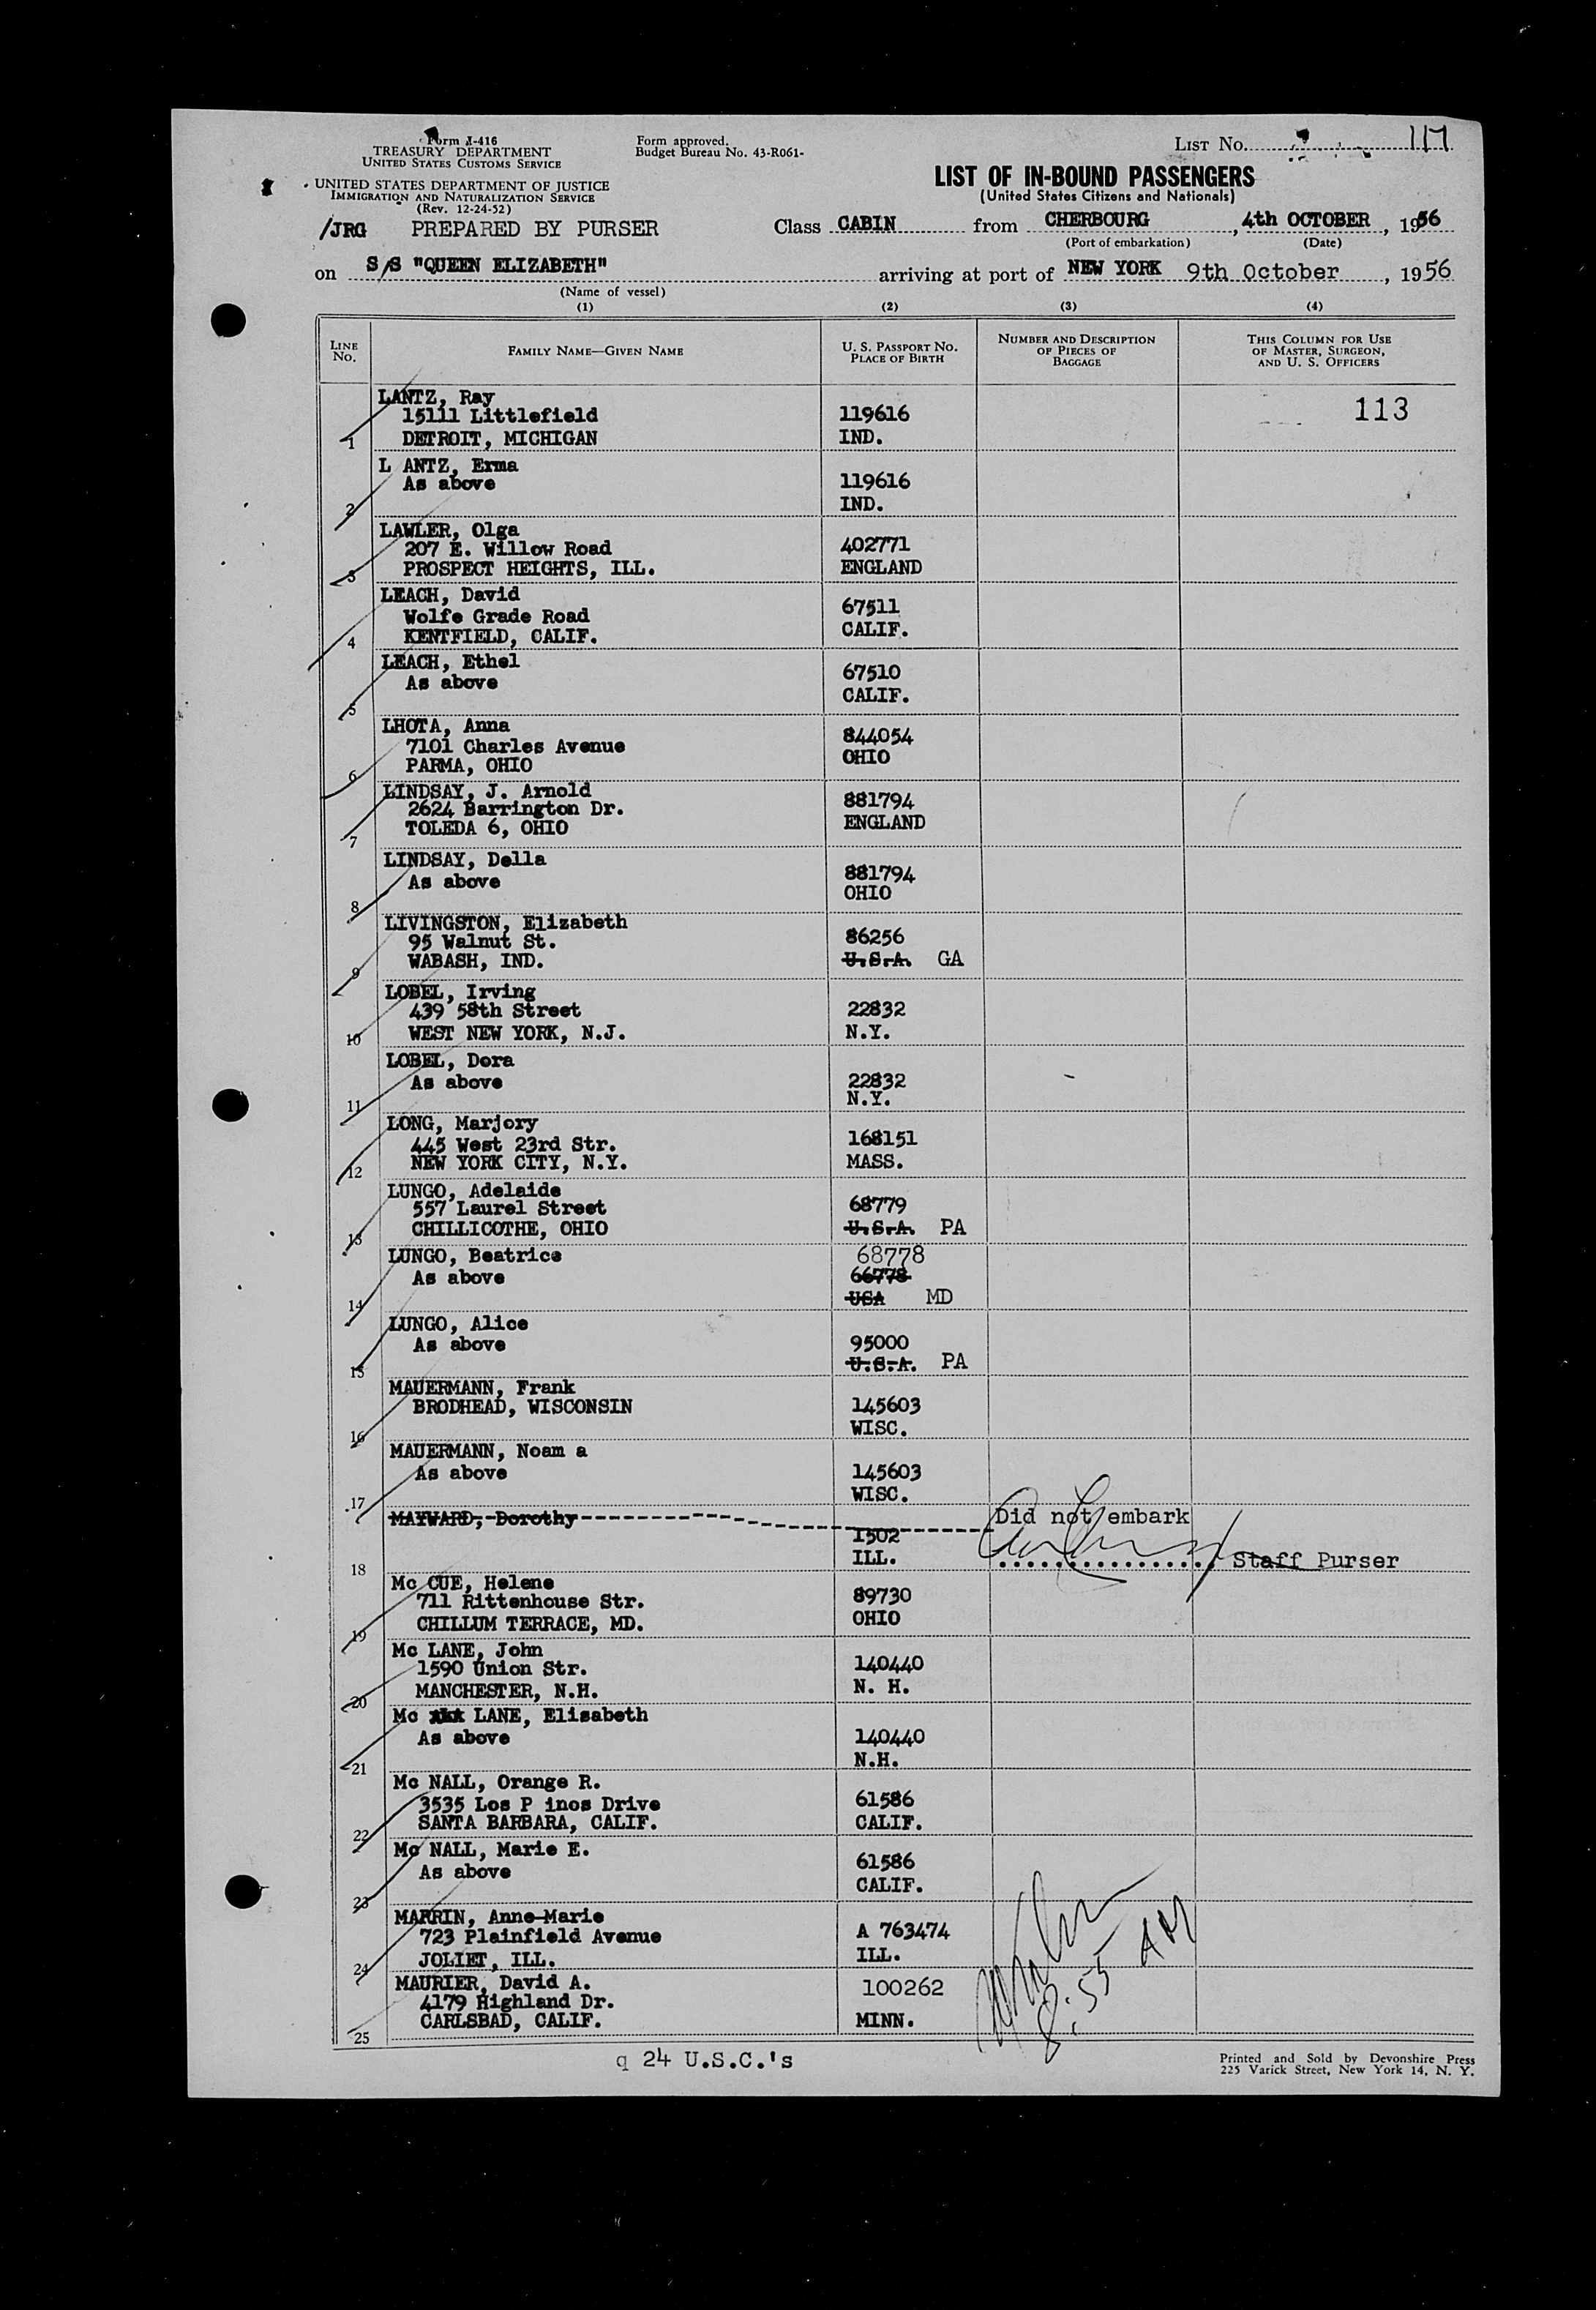 Form I-416
TREASURY DEPARTMENT
UNITED STATES CUSTOMS SERVICE
UNITED STATES DEPARTMENT OF JUSTICE
IMMIGRATION AND NATURALIZATION SERVICE
(Rev. 12-24-52)
Form approved.
Budget Bureau No. 43-R061-
LIST No. 117
LIST OF IN-BOUND PASSENGERS
(United States Citizens and Nationals)
/JRG PREPARED BY PURSER
Class CABIN from CHERBOURG, 4th OCTOBER, 1956
(Port of embarkation) (Date)
on S/S "QUEEN ELIZABETH" arriving at port of NEW YORK 9th October, 1956
(Name of vessel)
(1) (2) (3) (4)
LINE No. FAMILY NAME—GIVEN NAME U. S. PASSPORT No. PLACE OF BIRTH NUMBER AND DESCRIPTION OF PIECES OF BAGGAGE THIS COLUMN FOR USE OF MASTER, SURGEON, AND U. S. OFFICERS
LANTZ, Ray
15111 Littlefield 119616 113
1 DETROIT, MICHIGAN IND.
L ANTZ, Erma
As above 119616
2 IND.
LAWLER, Olga
207 E. Willow Road 402771
3 PROSPECT HEIGHTS, ILL. ENGLAND
LEACH, David
Wolfe Grade Road 67511
4 KENTFIELD, CALIF. CALIF.
LEACH, Ethel
As above 67510
5 CALIF.
LHOTA, Anna
7101 Charles Avenue 844054
6 PARMA, OHIO OHIO
LINDSAY, J. Arnold
2624 Barrington Dr. 881794
7 TOLEDA 6, OHIO ENGLAND
LINDSAY, Della
As above 881794
8 OHIO
LIVINGSTON, Elizabeth
95 Walnut St. 86256
9 WABASH, IND. U.S.A. GA
LOBEL, Irving
439 58th Street 22832
10 WEST NEW YORK, N.J. N.Y.
LOBEL, Dora
As above 22832
11 N.Y.
LONG, Marjory
445 West 23rd Str. 168151
12 NEW YORK CITY, N.Y. MASS.
LUNGO, Adelaide
557 Laurel Street 68779
13 CHILLICOTHE, OHIO U.S.A. PA
LUNGO, Beatrice 68778
As above 66778
14 USA MD
LUNGO, Alice
As above 95000
15 U.S.A. PA
MAUERMANN, Frank
BRODHEAD, WISCONSIN 145603
16 WISC.
MAUERMANN, Noam a
As above 145603
17 WISC.
MAYWARD, Dorothy Did not embark
1502
18 ILL. Staff Purser
Mc CUE, Helene
711 Rittenhouse Str. 89730
19 CHILLUM TERRACE, MD. OHIO
Mc LANE, John
1590 Union Str. 140440
20 MANCHESTER, N.H. N. H.
Mc LANE, Elisabeth
As above 140440
21 N.H.
Mc NALL, Orange R.
3535 Los P inos Drive 61586
22 SANTA BARBARA, CALIF. CALIF.
Mc NALL, Marie E.
As above 61586
23 CALIF.
MARRIN, Anne-Marie
723 Plainfield Avenue A 763474
24 JOLIET, ILL. ILL.
MAURIER, David A.
4179 Highland Dr. 100262
25 CARLSBAD, CALIF. MINN.
8:55 AM
q 24 U.S.C.'s
Printed and Sold by Devonshire Press
225 Varick Street, New York 14, N. Y.